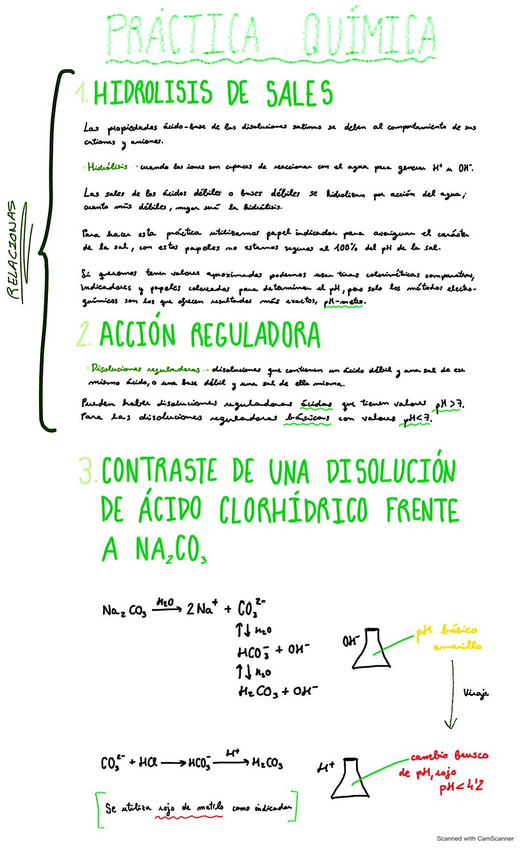 PRÁCTICA QUÍMICA
RELACIONAS
1. HIDROLISIS DE SALES
Las propiedades ácido-base de las disoluciones salinas se deben al comportamiento de sus
cationes y aniones.
· Hidrólisis - cuando los iones son capaces de reaccionar con el agua para generar H⁺ u OH⁻.
Las sales de los ácidos débiles o bases débiles se hidrolizan por acción del agua;
cuanto más débiles, mayor será la hidrólisis.
Para hacer esta práctica utilizamos papel indicador para averiguar el carácter
de la sal, con estos papeles no estamos seguros al 100% del pH de la sal.
Si queremos tener valores aproximados podemos usar tiras colorimétricas comparativas,
indicadores y papeles coloreados para determinar el pH, pero solo los métodos electro-
químicos son los que ofrecen resultados más exactos, pH-metro.
2. ACCIÓN REGULADORA
· Disoluciones reguladoras - disoluciones que contienen un ácido débil y una sal de ese
mismo ácido, o una base débil y una sal de ella misma.
Pueden haber disoluciones reguladoras ácidas que tienen valores pH>7.
Para las disoluciones reguladoras básicas con valores pH<7.
3. CONTRASTE DE UNA DISOLUCIÓN
DE ÁCIDO CLORHÍDRICO FRENTE
A NA₂CO₃
Na₂CO₃ H₂O → 2Na⁺ + CO₃²⁻
↑↓ H₂O
HCO₃⁻ + OH⁻
↑↓ H₂O
H₂CO₃ + OH⁻
OH⁻
pH básico
amarillo
Viraje
CO₃²⁻ + HCl → HCO₃⁻ H⁺ → H₂CO₃
H⁺
cambio brusco
de pH, rojo
pH<4'2
[Se utiliza rojo de metilo como indicador]
Scanned with CamScanner